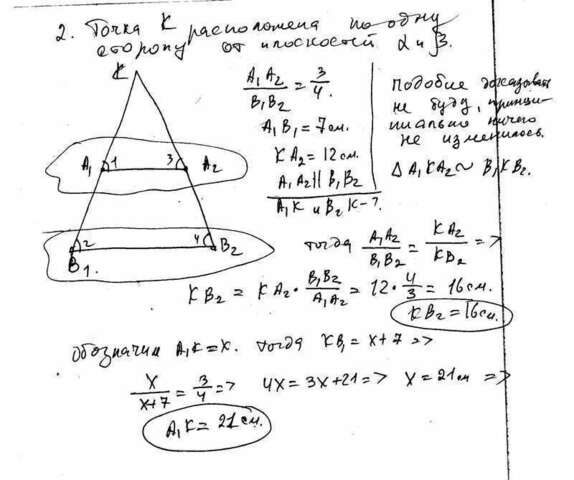 2. Точка K расположена по одну
сторону от плоскостей α и β.
K
A₁ 1 3 A₂
2 4
B₁. B₂
A₁A₂/B₁B₂ = 3/4.
A₁B₁ = 7см.
KA₂ = 12см.
A₁A₂ || B₁B₂
A₁K и B₂K - ?
подобие доказывать
не буду, принци-
пиально ничего
не изменилось.
Δ A₁KA₂ ~ B₁KB₂.
тогда A₁A₂/B₁B₂ = KA₂/KB₂ =>
KB₂ = KA₂ · B₁B₂/A₁A₂ = 12 · 4/3 = 16см.
KB₂ = 16см.
обозначим A₁K = x. тогда KB₁ = x + 7 =>
x/x+7 = 3/4 => 4x = 3x + 21 => x = 21см =>
A₁K = 21см.